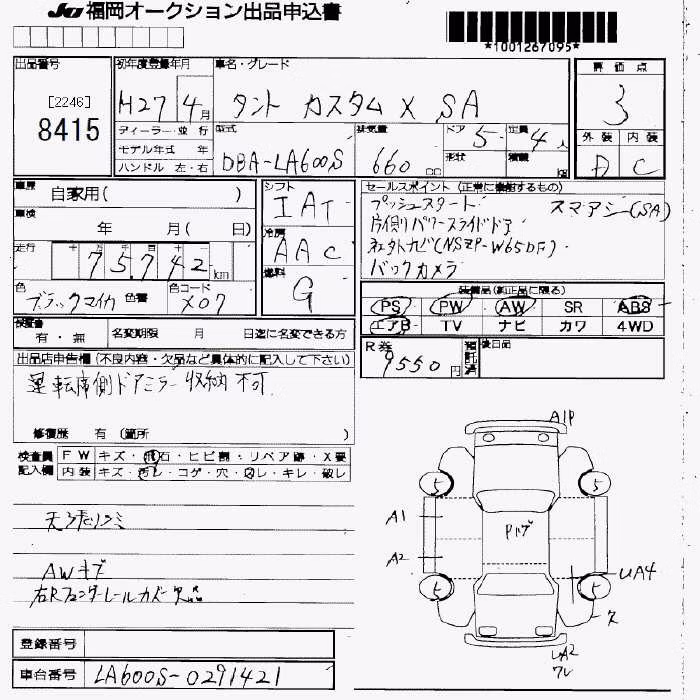 JU 福岡オークション出品申込書
*1001267095*
出品番号
[2246]
8415
初年度登録年月
H27 4月
車名・グレード
タント カスタム X SA
評価点
3
外装 内装
D C
ディーラー・並行
モデル年式 年
ハンドル 左・右
型式
DBA-LA600S
排気量
660 cc
ドア
5
形状
定員
4人
積載
kg
車歴
自家用( )
車検
年 月( 日)
走行
十 万 千 百 十 一
75,742 km
色
ブラックマイカ
色番
色コード
X07
シフト
IAT
冷房
AAC
燃料
G
セールスポイント (正常に機動するもの)
プッシュスタート スマアシ(SA)
片側パワースライドドア
社外ナビ(NSZP-W65DF)
バックカメラ
装備品(純正品に限る)
PS PW AW SR ABS
エアB TV ナビ カワ 4WD
R券
9550円
預託済
後日品
検査書
有・無
名変期限 月 日迄に名変できる方
出品店申告欄 (不良内容・欠品など具体的に記入して下さい)
運転席側ドアミラー収納不可
修復歴 有 (箇所 )
検査員記入欄
FW キズ・飛石・ヒビ割・リペア跡・X要
内装 キズ・汚レ・コゲ・穴・スレ・キレ・破レ
天張リシミ
AWキズ
右Rフェンダーレールカバー欠品
A1P
5
5
A1
A2
Pハゲ
UA4
5
5
ス
UA2
ワレ
登録番号
車台番号
LA600S-0291421